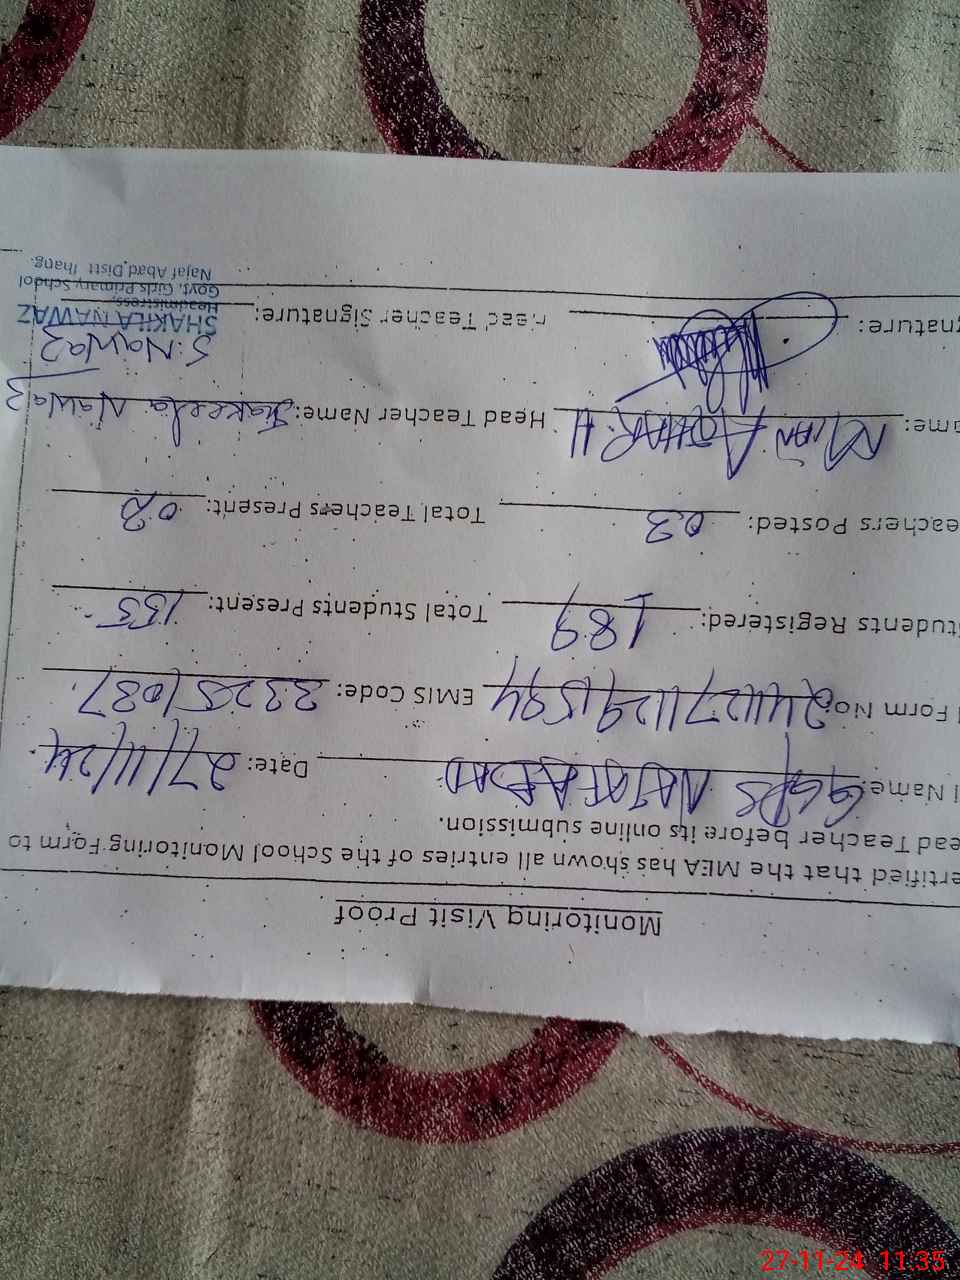 Monitoring Visit Proof
ertified that the MEA has shown all entries of the School Monitoring Form to
ead Teacher before its online submission.
l Name: GGPS NAJAF ABAD Date: 27/11/24
l Form No: EMIS Code: 33251037
tudents Registered: 189 Total Students Present: 155
eachers Posted: 03 Total Teachers Present: 02
ame: MIAN AZHAR.H Head Teacher Name: Shakeela Nawaz
gnature: Head Teacher Signature: S.Nawaz
SHAKILA NAWAZ
Headmistress,
Govt. Girls Primary School
Najaf Abad Distt Jhang.
27-11-24 11:35